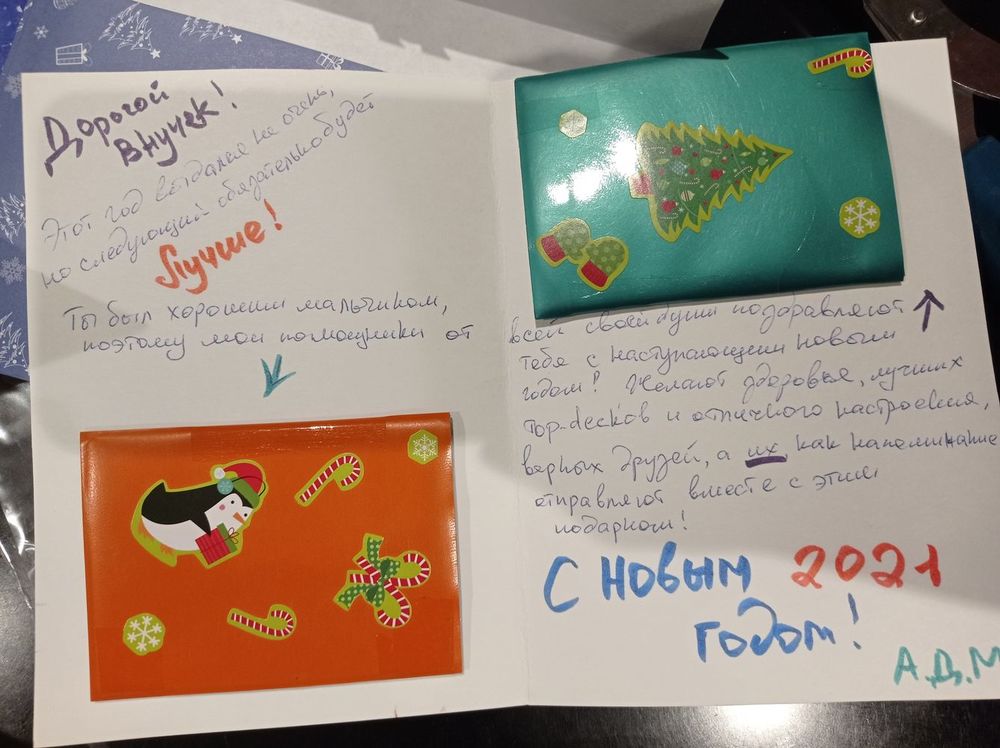 Дорогой
внучек!
Этот год выдался не очень,
но следующий обязательно будет
лучше!
Ты был хорошим мальчиком,
поэтому мои помощники от
всей своей души поздравляют
тебя с наступающим новым
годом! Желают здоровья, лучших
top-deck'ов и отличного настроения,
верных друзей, а их как напоминание
отправляют вместе с этим
подарком!
С новым 2021
годом!
А.Д.М